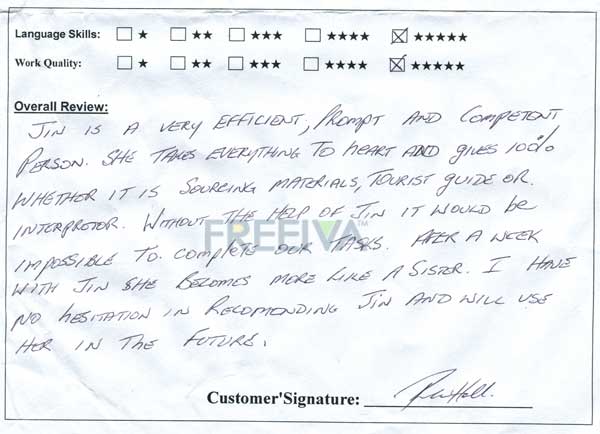 Language Skills: ☐ ★ ☐ ★★ ☐ ★★★ ☐ ★★★★ ☒ ★★★★★
Work Quality: ☐ ★ ☐ ★★ ☐ ★★★ ☐ ★★★★ ☒ ★★★★★
Overall Review:
JIN IS A VERY EFFICIENT, PROMPT AND COMPETENT
PERSON. SHE TAKES EVERYTHING TO HEART AND GIVES 100%
WHETHER IT IS SOURCING MATERIALS, TOURIST GUIDE OR.
INTERPRETOR. WITHOUT THE HELP OF JIN IT WOULD BE
FREEIVA™
IMPOSSIBLE TO. COMPLETE OUR TASKS. AFTER A WEEK
WITH JIN SHE BECOMES MORE LIKE A SISTER. I HAVE
NO HESITATION IN RECOMONDING JIN AND WILL USE
HER IN THE FUTURE.
Customer'Signature: